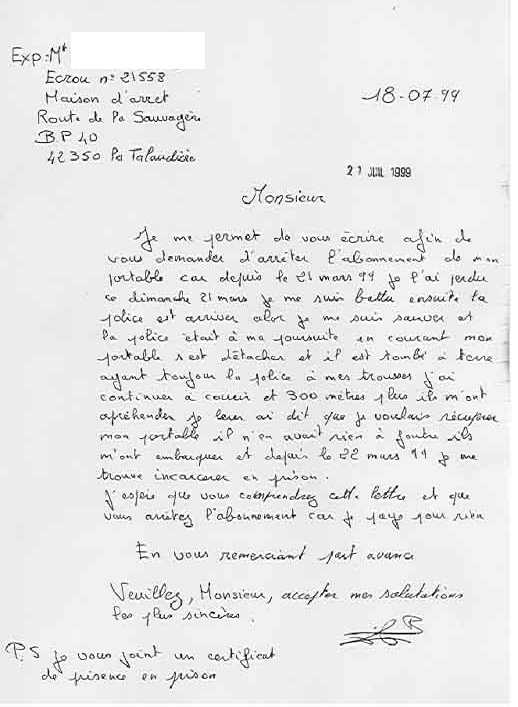 Exp: Mr
Ecrou n° 21558
Maison d'arret
Route de la Sauvagère
B.P 40
42350 la Talaudière
18-07-99
21 JUIL 1999
Monsieur
Je me permet de vous écrire afin de
vous demander d'arrêter l'abonnement de mon
portable car depuis le 21 mars 99 je l'ai perdu
ce dimanche 21 mars je me suis battu ensuite la
police est arriver alor je me suis sauver et
la police était à ma poursuite en courant mon
portable s'est détacher et il est tombé à terre
ayant toujour la police à mes trousses j'ai
continuer à courir et 300 mètres plus ils m'ont
apréhender je leur ai dit que je voulais récupérer
mon portable il n'en avait rien à foutre ils
m'ont embarquer et depuis le 22 mars 99 je me
trouve incarcerer en prison.
J'espère que vous comprendrez cette lettre et que
vous arrêtez l'abonnement car je paye pour rien
En vous remerciant part avance
Veuillez, Monsieur, accepter mes salutations
les plus sincères.
P.S je vous joint un certificat
de présence en prison